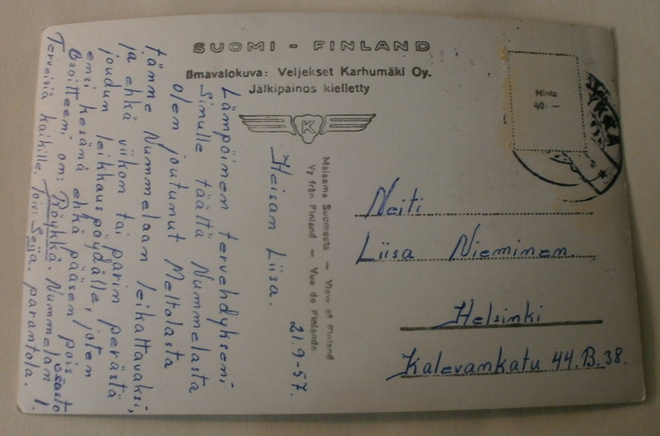 SUOMI - FINLAND
Ilmavalokuva: Veljekset Karhumäki Oy.
Jälkipainos kielletty
K
Maisema Suomesta — View of Finland
Vy från Finland — Vue de Finlande
Hinta
40:—
21.9-57.
Heisan Liisa.
Lämpöinen tervehdykseni
Sinulle täältä Nummelasta
Olen joutunut Meltolasta
tänne Nummelaan leikattavaksi,
ja ehkä viikon tai parin perästä
joudun leikkauspöydälle, joten
ensi kesänä ehkä pääsen pois
Osoitteeni on: Röykkä. Nummelan
parantola. osasto 1.
Terveisiä kaikille. Toivi Seija.
Neiti
Liisa Nieminen
Helsinki
Kalevankatu 44.B.38.